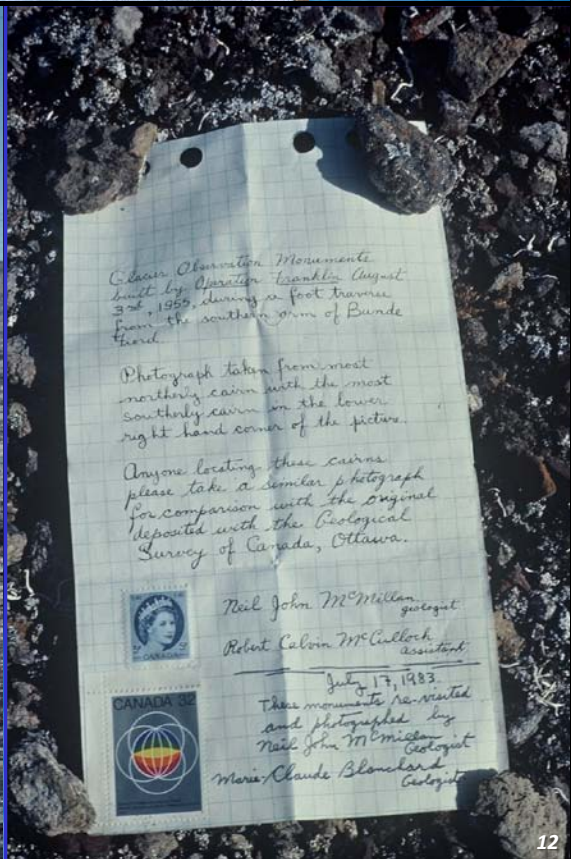 Glacier Observation Monuments
built by Operation Franklin August
3rd, 1955, during a foot traverse
from the southern arm of Bunde
Fiord.
Photograph taken from most
northerly cairn with the most
southerly cairn in the lower
right hand corner of the picture.
Anyone locating these cairns
please take a similar photograph
for comparison with the original
deposited with the Geological
Survey of Canada, Ottawa.
Neil John McMillan
geologist
Robert Calvin McCulloch
assistant
July 17, 1983
These monuments re-visited
and photographed by
Neil John McMillan
Geologist
Marie-Claude Blanchard
Geologist
CANADA
CANADA 32
12